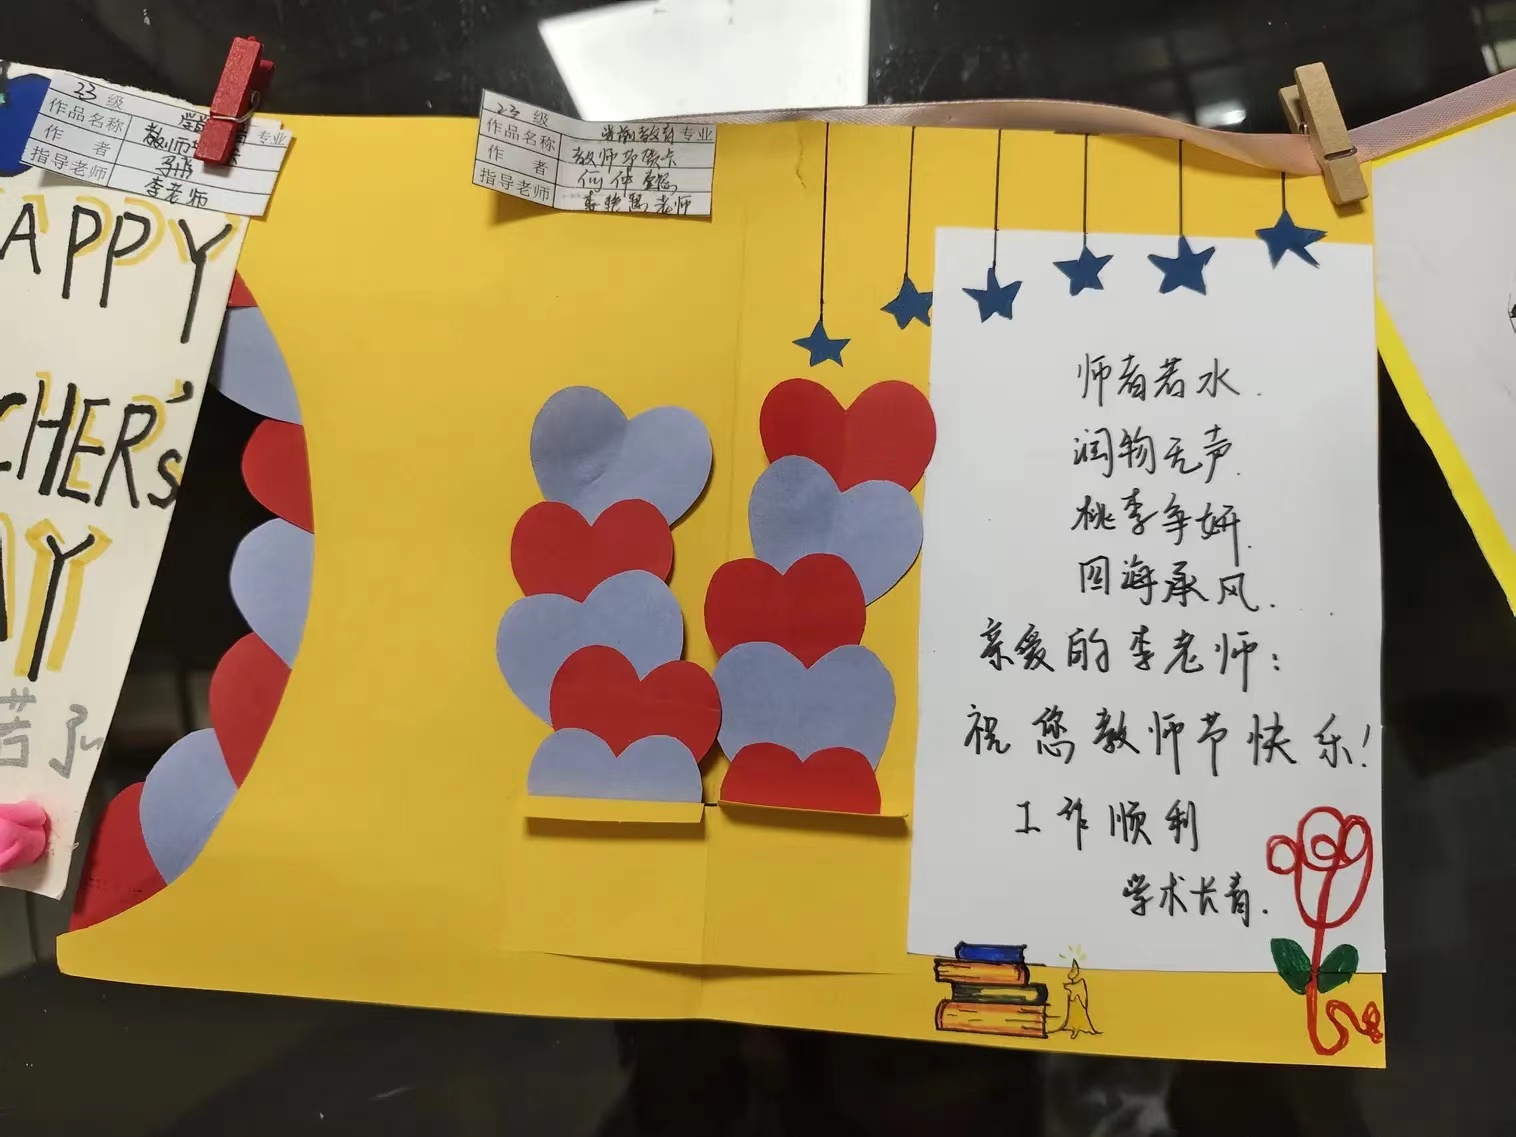 23 级
作品名称 教师
专业
作者
指导老师 李老师
APPY
CHER's
AY
苦了
23 级
学前教育专业
作品名称 教师节贺卡
作者 何仲
指导老师 李艳 老师
师者若水.
润物无声.
桃李争妍.
四海承风.
亲爱的李老师:
祝您教师节快乐!
工作顺利
学术长青.